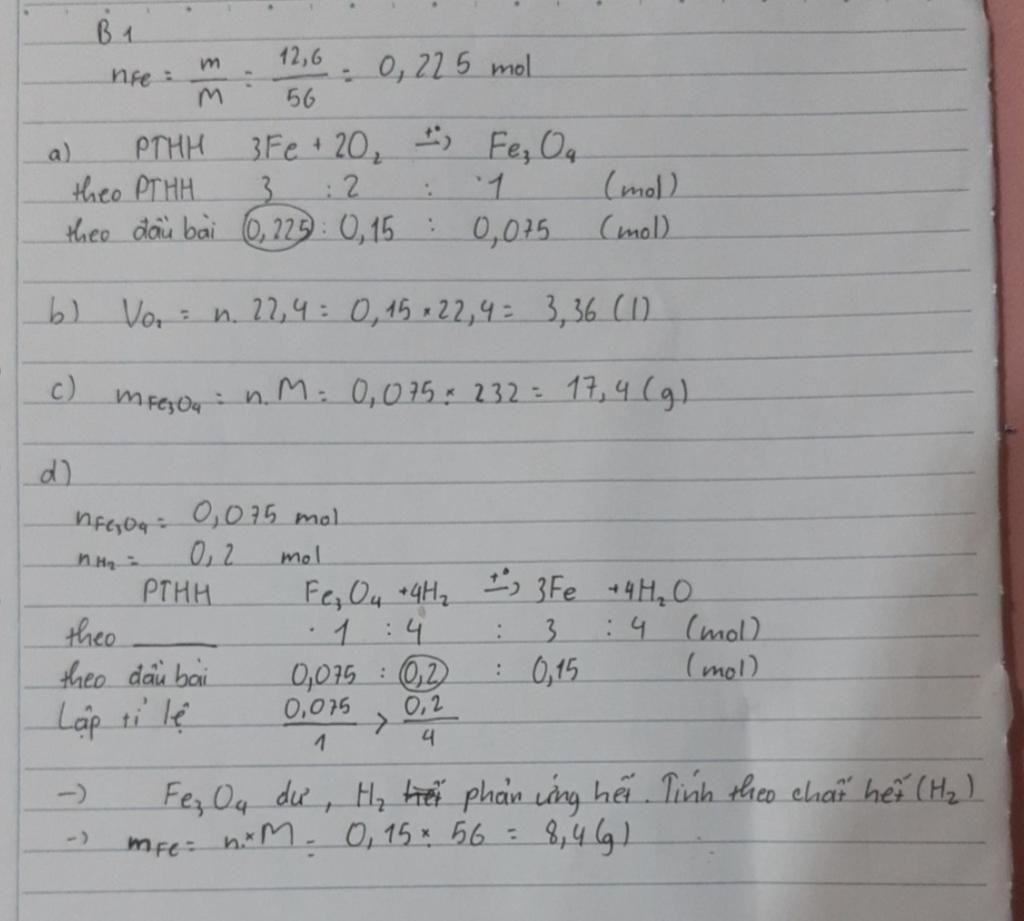 B1
nFe = m/M = 12,6/56 = 0,225 mol
a) PTHH 3Fe + 2O₂ —t°→ Fe₃O₄
theo PTHH 3 : 2 : 1 (mol)
theo đầu bài 0,225 : 0,15 : 0,075 (mol)
b) VO₂ = n. 22,4 = 0,15 × 22,4 = 3,36 (l)
c) mFe₃O₄ = n.M = 0,075 × 232 = 17,4 (g)
d)
nFe₃O₄ = 0,075 mol
nH₂ = 0,2 mol
PTHH Fe₃O₄ + 4H₂ —t°→ 3Fe + 4H₂O
theo ——— 1 : 4 : 3 : 4 (mol)
theo đầu bài 0,075 : 0,2 : 0,15 (mol)
Lập tỉ lệ 0,075/1 > 0,2/4
→ Fe₃O₄ dư, H₂ phản ứng hết. Tính theo chất hết (H₂)
→ mFe = n × M = 0,15 × 56 = 8,4 (g)